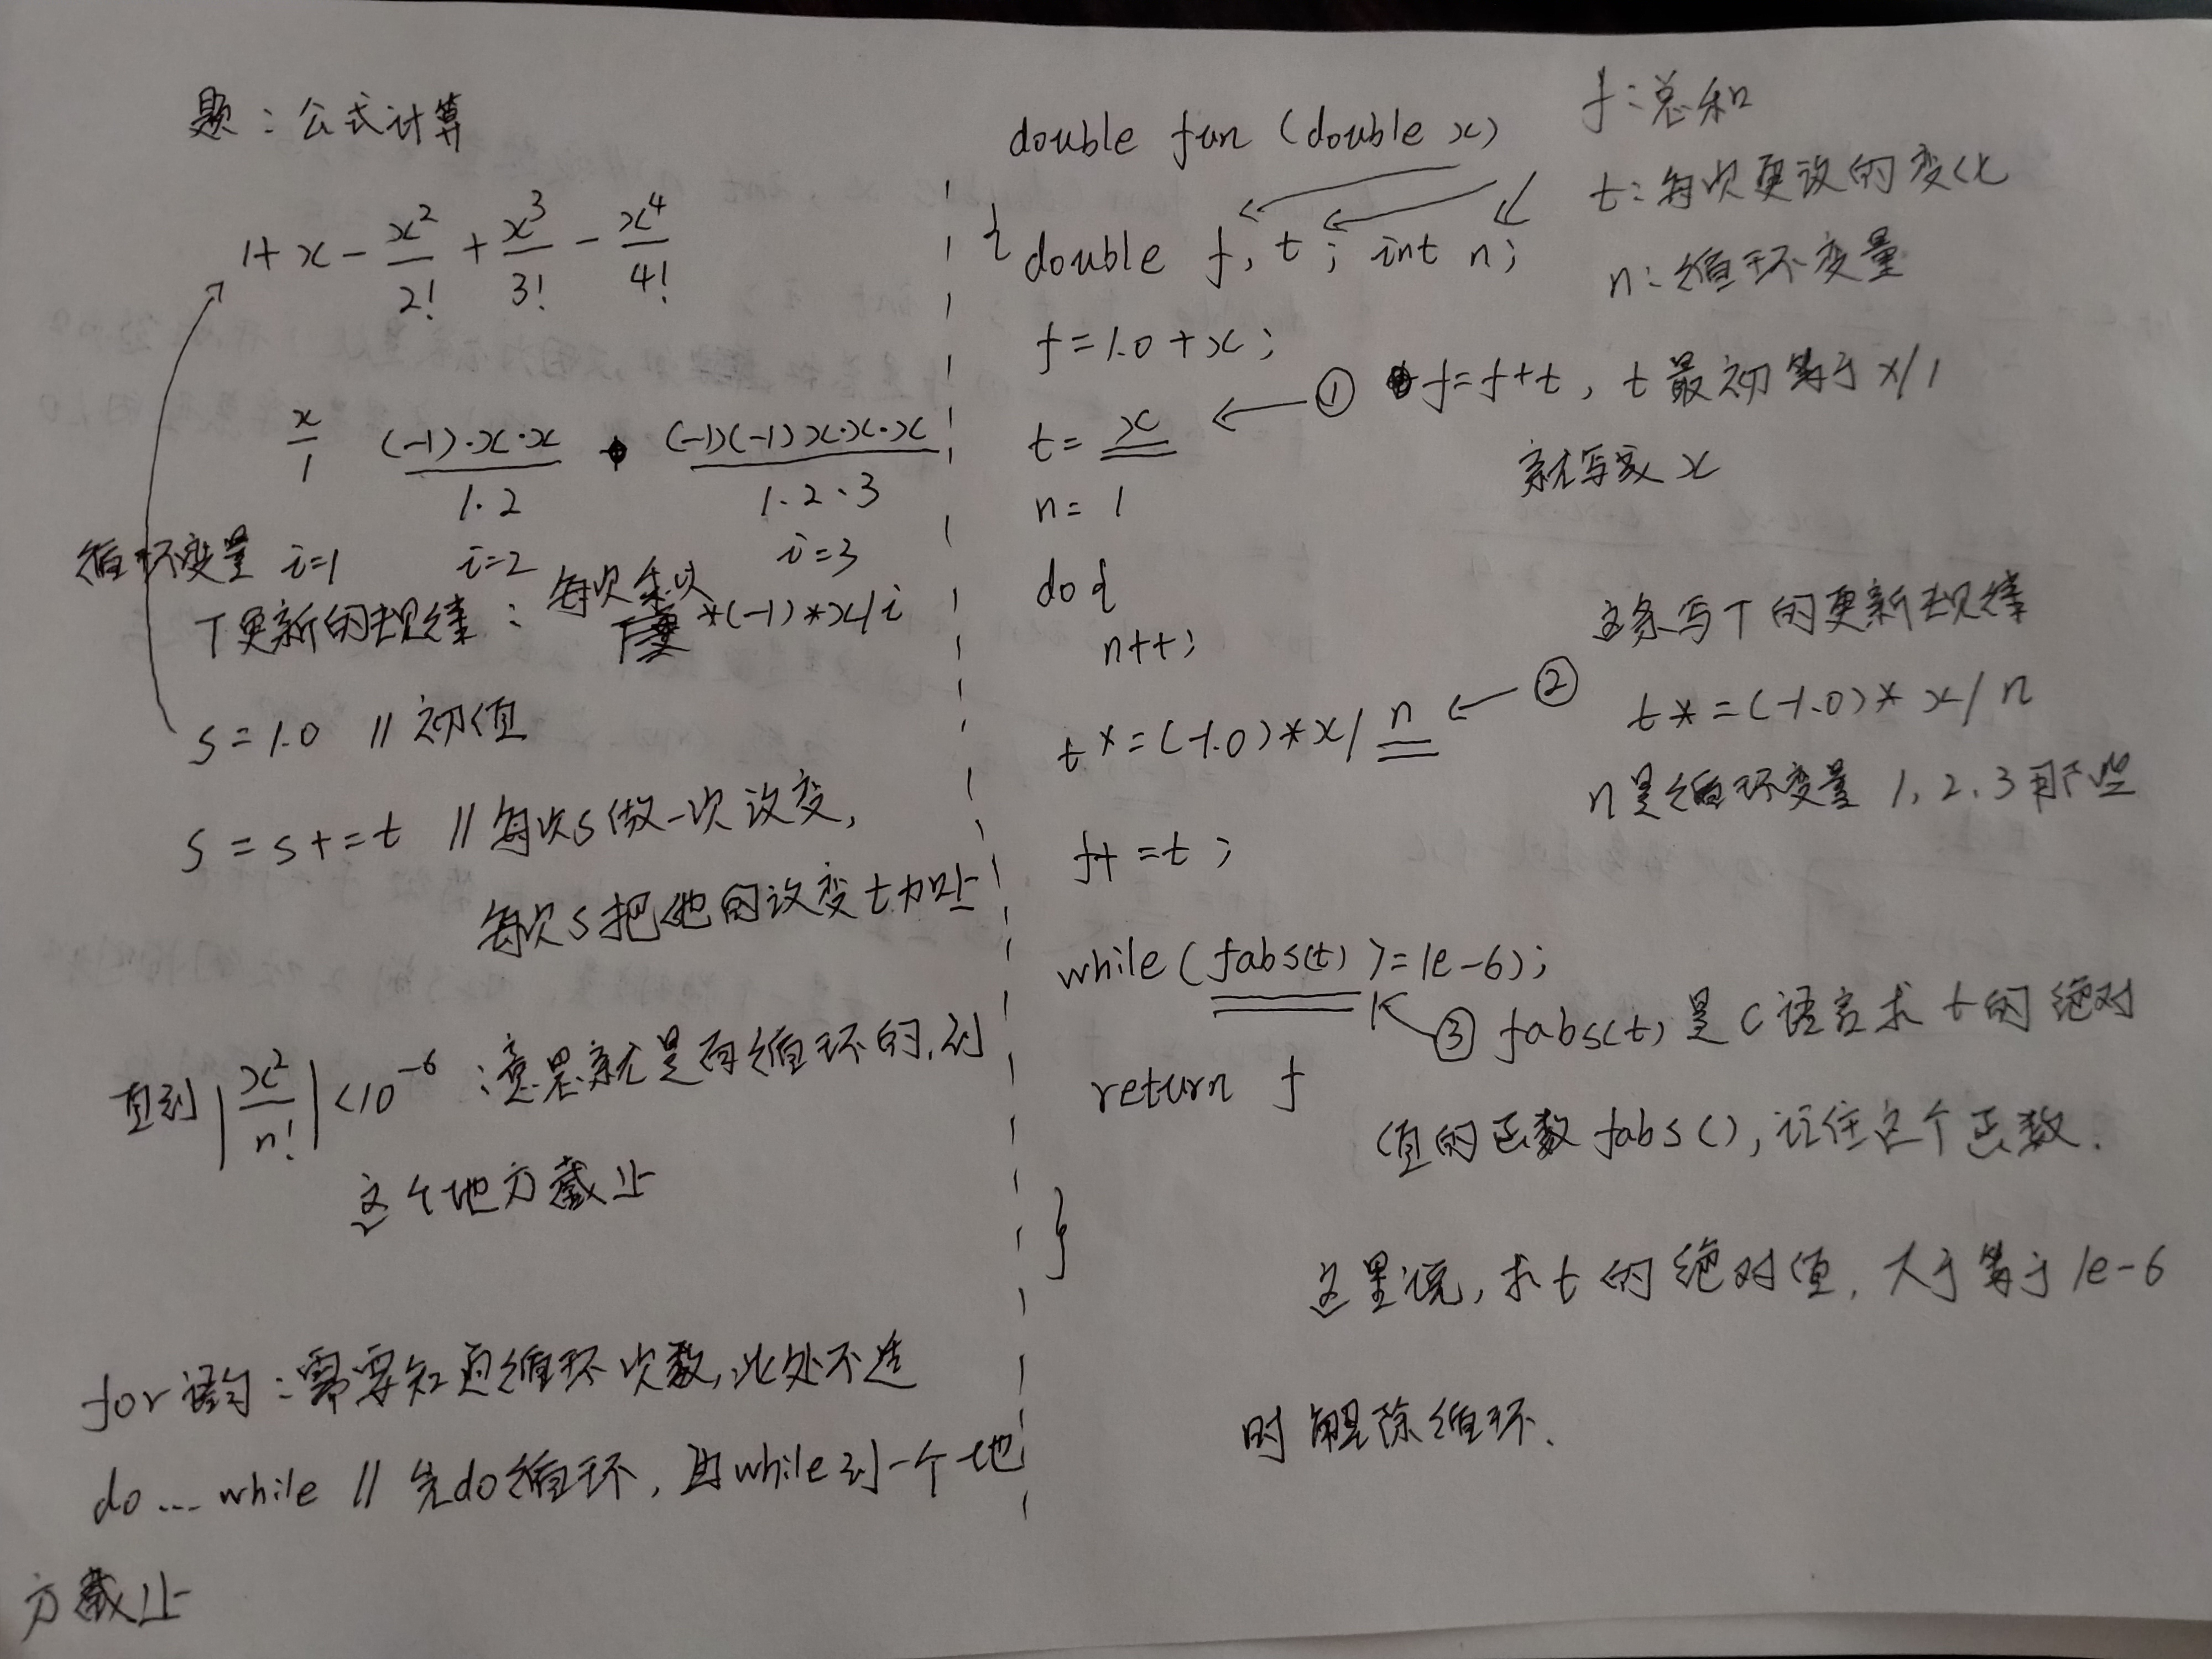 题：公式计算
1+x-x²/2!+x³/3!-x⁴/4!
x/1 (-1)·x·x/1·2 (-1)(-1)x·x·x/1·2·3
循环变量 i=1 i=2 i=3
T更新的规律：每次乘以 *(-1)*x/i
s=1.0 //初值
s=s+=t //每次s做一次改变,
每次s把他的改变t加上
直到|x²/n!|<10⁻⁶：意思就是再循环的,到
这个地方截止
for语句：需要知道循环次数,此处不选
do...while //先do循环,再while到一个地
方截止
double fun (double x)
{
double f, t; int n;
f=1.0+x;
t=x
n=1
do{
n++;
t*=(-1.0)*x/n
f+=t;
while(fabs(t)>=1e-6);
return f
}
f:总和
t:每次更改的变化
n:循环变量
① f=f+t, t最初等于x/1
就写成x
② 这条写T的更新规律
t*=(-1.0)*x/n
n是循环变量 1,2,3那些
③ fabs(t)是C语言求t的绝对
值的函数fabs(),记住这个函数.
这里说,求t的绝对值,大于等于1e-6
时解除循环.